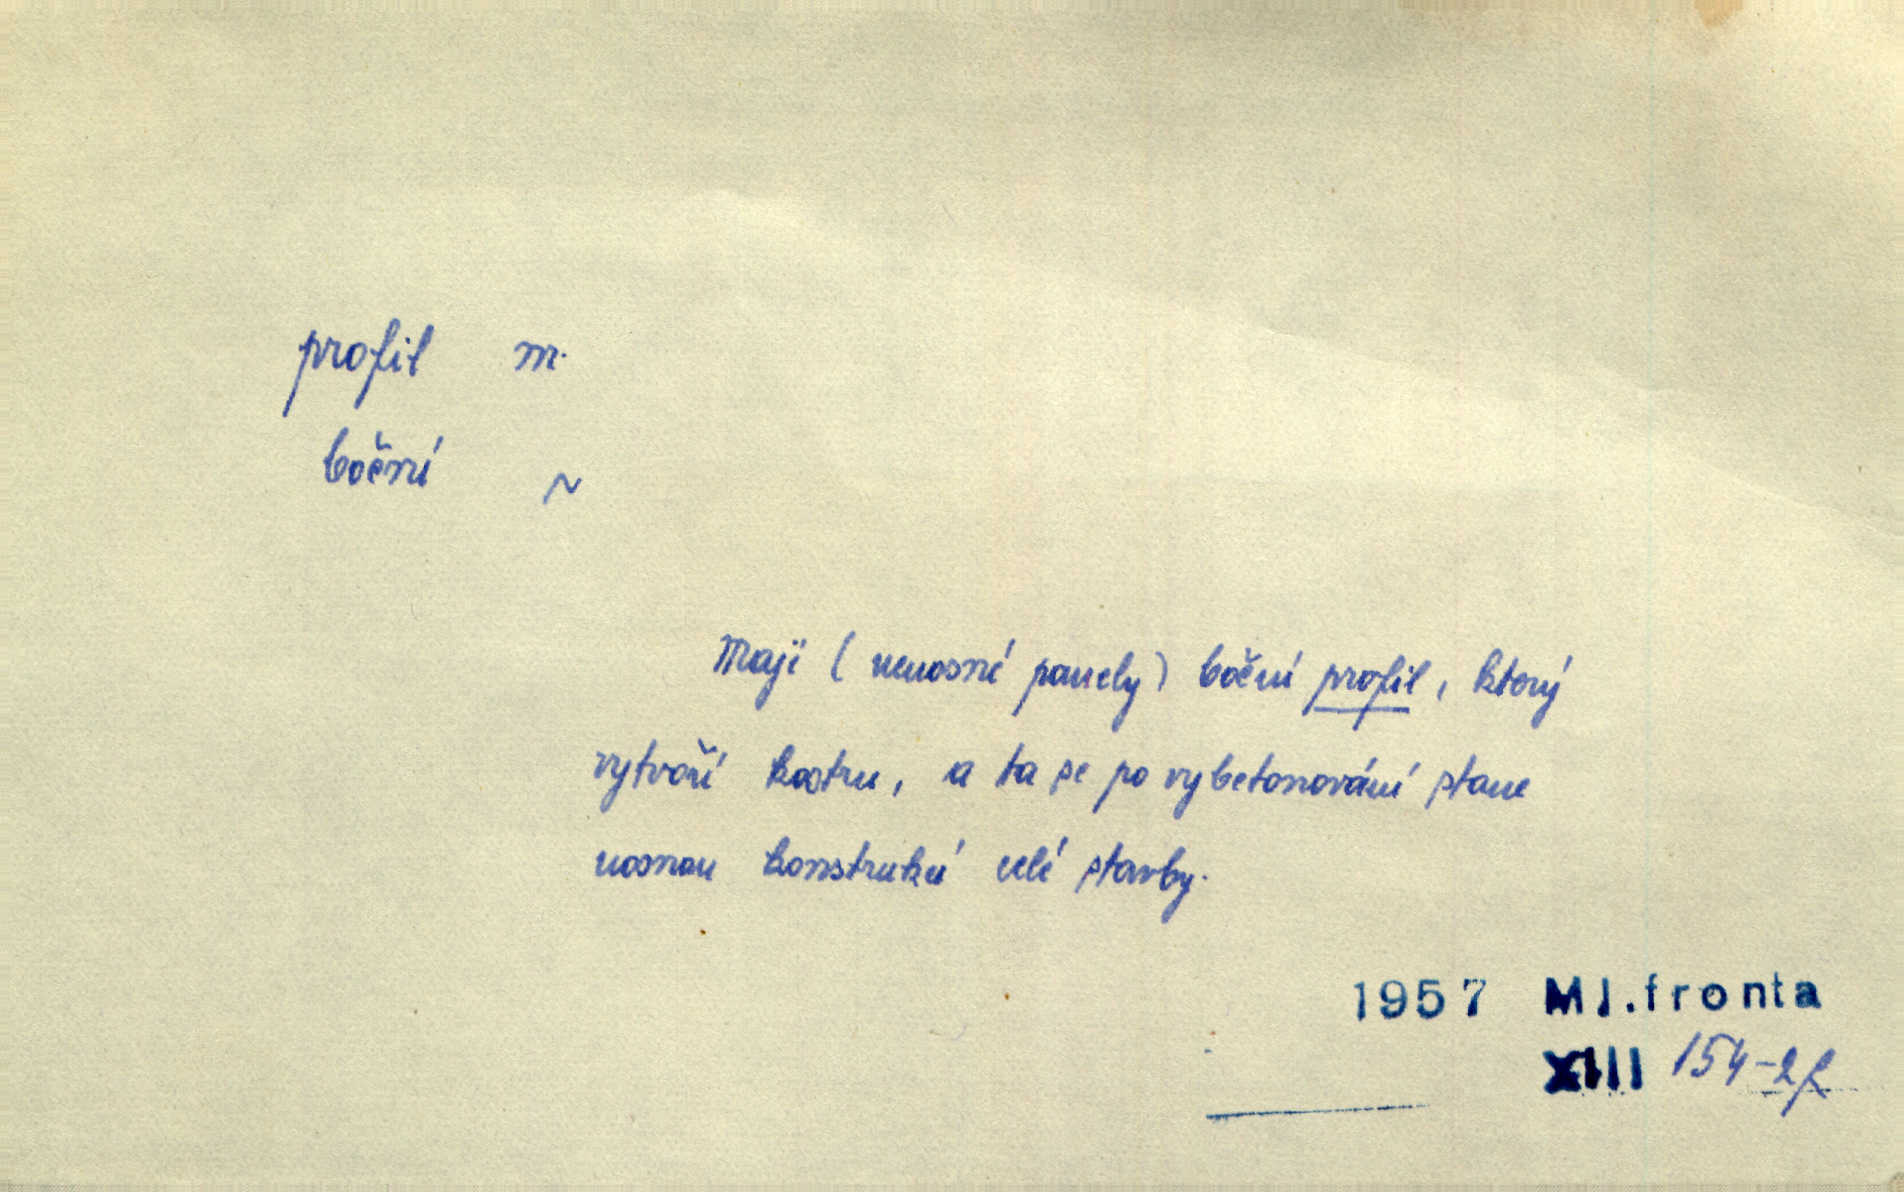 profil m.
boční ~
Mají (nenosné panely) boční profil, který
vytvoří kostru, a ta se po vybetonování stane
nosnou konstrukcí celé stavby.
1957 Ml.fronta
XIII 154-2